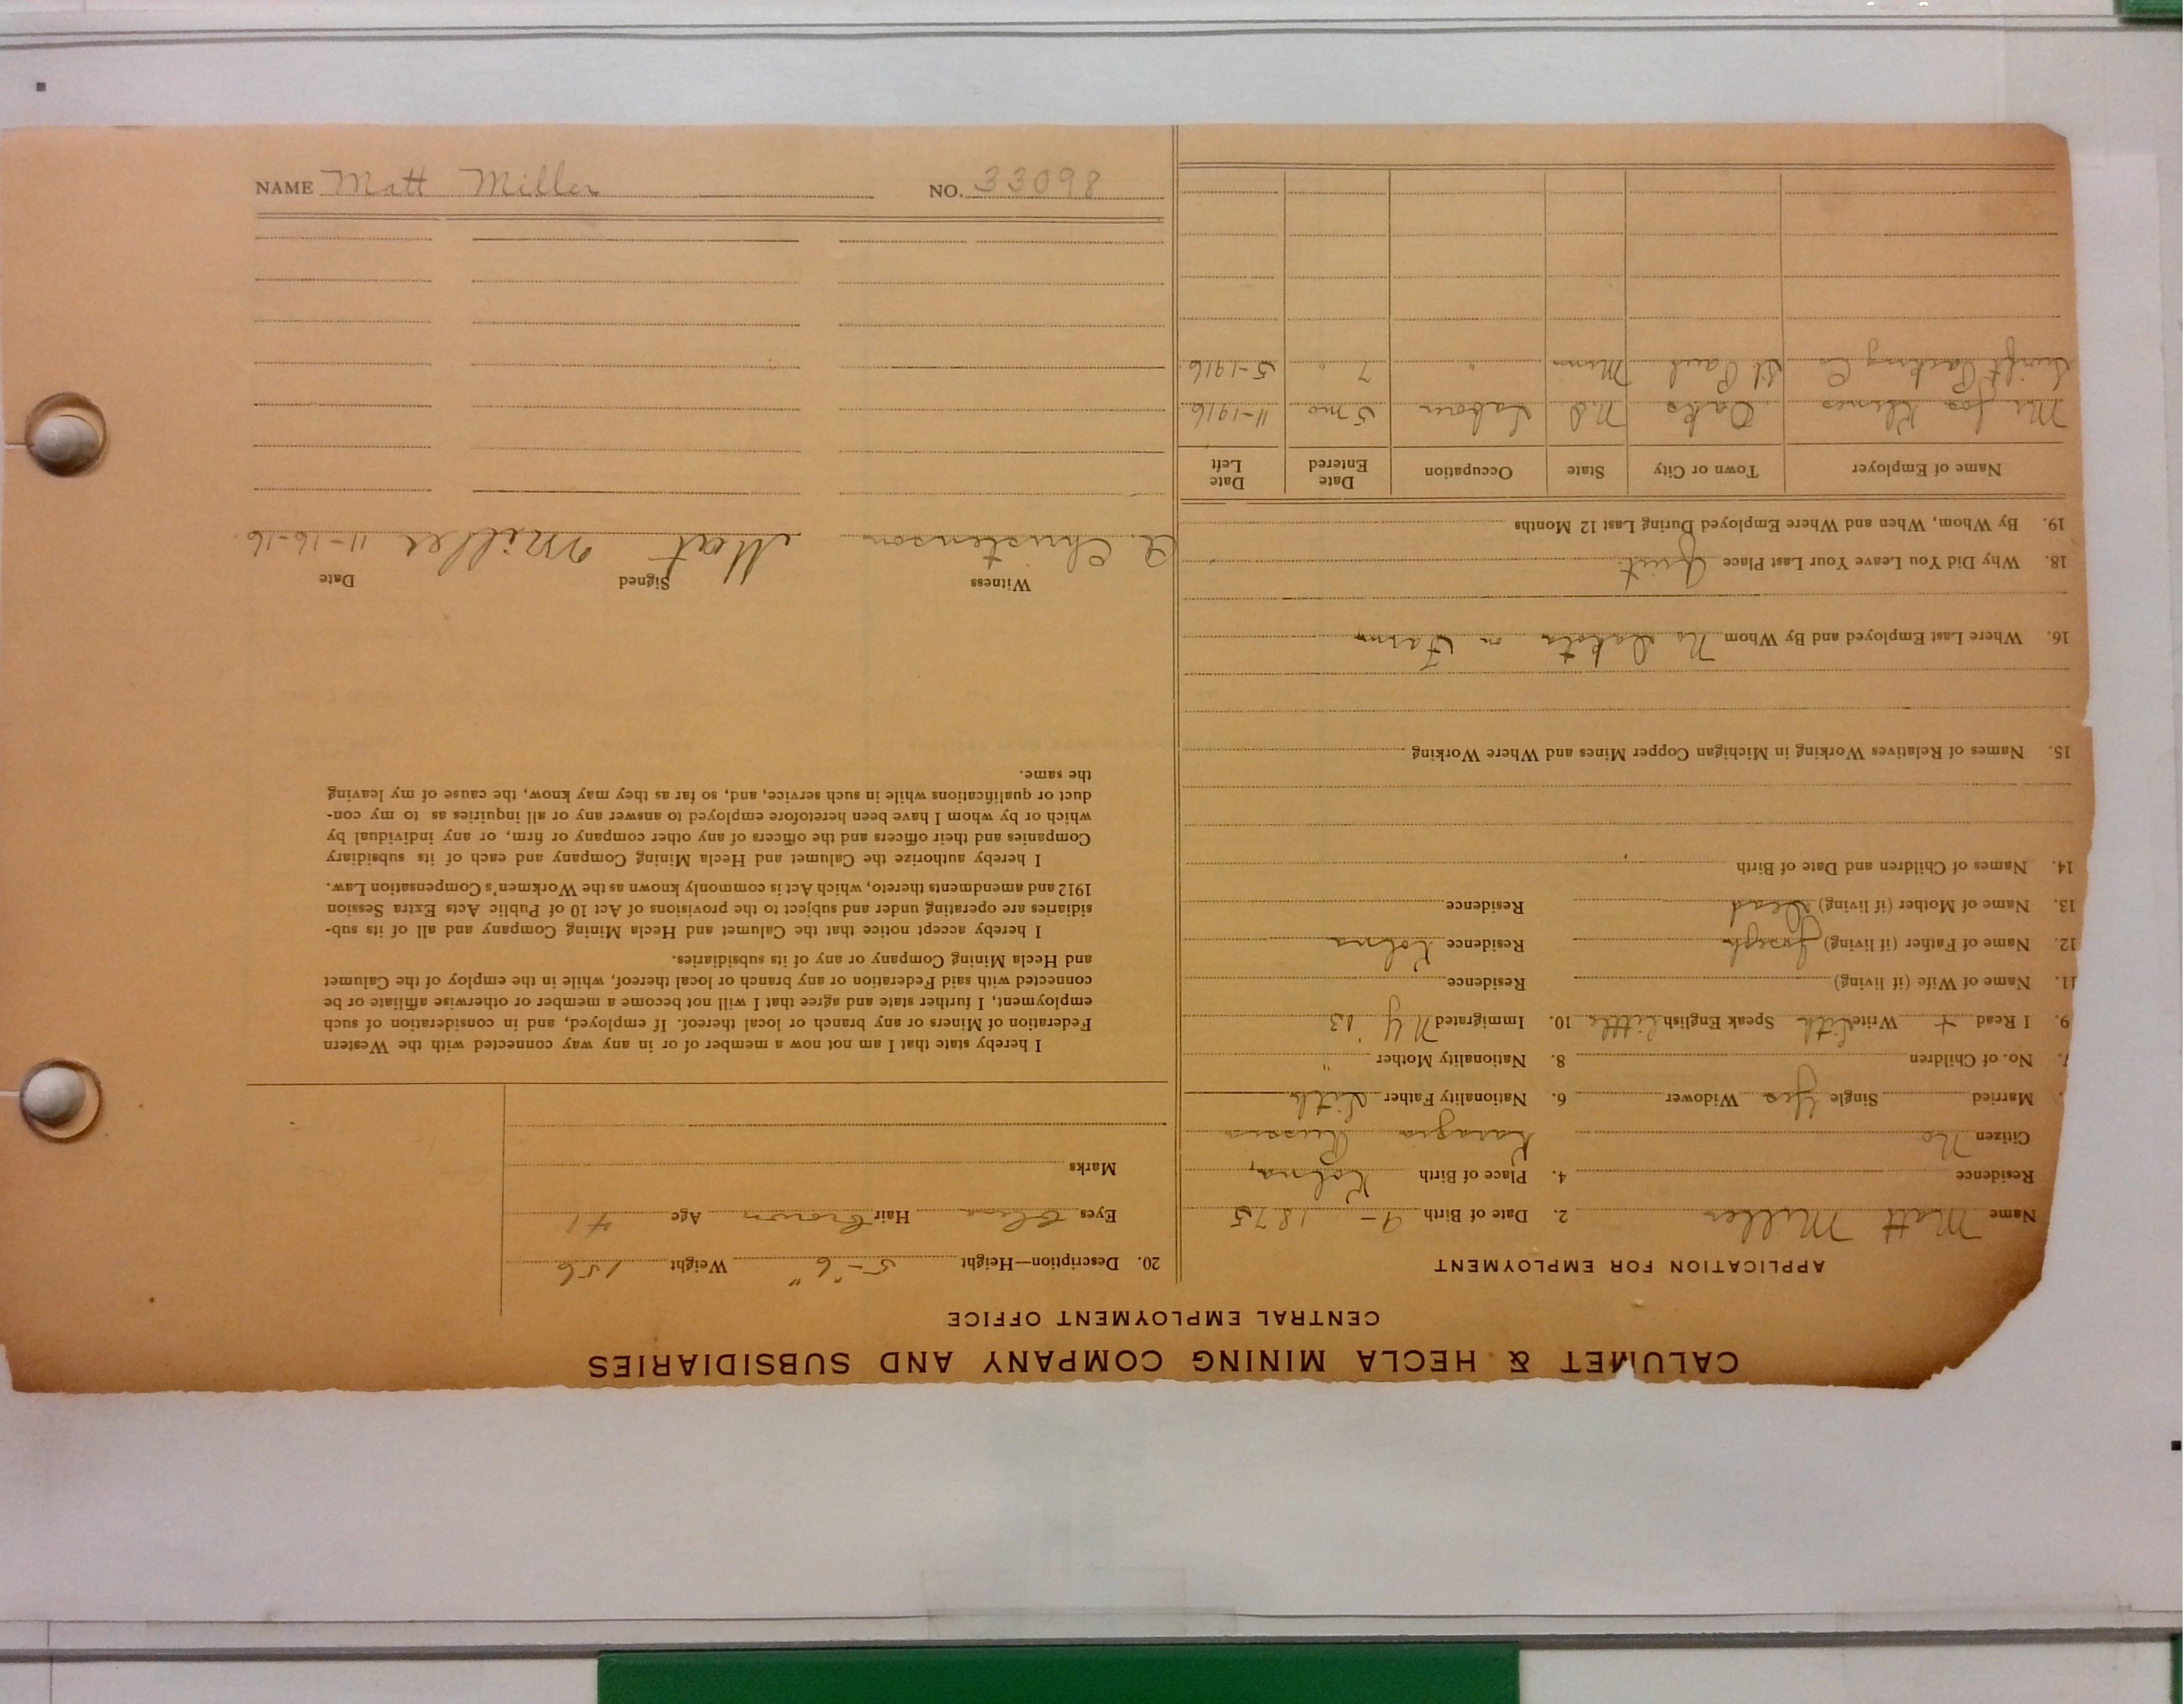 NAME Matt Miller NO. 33098
CALUMET & HECLA MINING COMPANY AND SUBSIDIARIES
CENTRAL EMPLOYMENT OFFICE
APPLICATION FOR EMPLOYMENT
Name Matt Miller 2. Date of Birth 9- 1875
Residence 4. Place of Birth Kolna
Citizen No Russia
Married Single Yes Widower 6. Nationality Father Lith
7. No. of Children 8. Nationality Mother "
9. I Read + Write Lith Speak English Little 10. Immigrated NY '13
11. Name of Wife (if living) Residence
12. Name of Father (if living) Joseph Residence Kolna
13. Name of Mother (if living) Dead Residence
14. Names of Children and Date of Birth
15. Names of Relatives Working in Michigan Copper Mines and Where Working
16. Where Last Employed and By Whom No Dakota on Farm
18. Why Did You Leave Your Last Place Quit
19. By Whom, When and Where Employed During Last 12 Months
Name of Employer Town or City State Occupation Date Entered Date Left
Mr Jos Oaks N.D Labour 5 mo 11-1916
Swift Packing Co St Paul Minn " 7 " 5-1916
20. Description—Height 5-"6" Weight 156
Eyes Blue Hair Brown Age 41
Marks
I hereby state that I am not now a member of or in any way connected with the Western
Federation of Miners or any branch or local thereof. If employed, and in consideration of such
employment, I further state and agree that I will not become a member or otherwise affiliate or be
connected with said Federation or any branch or local thereof, while in the employ of the Calumet
and Hecla Mining Company or any of its subsidiaries.
I hereby accept notice that the Calumet and Hecla Mining Company and all of its sub-
sidiaries are operating under and subject to the provisions of Act 10 of Public Acts Extra Session
1912 and amendments thereto, which Act is commonly known as the Workmen's Compensation Law.
I hereby authorize the Calumet and Hecla Mining Company and each of its subsidiary
Companies and their officers and the officers of any other company or firm, or any individual by
which or by whom I have been heretofore employed to answer any or all inquiries as to my con-
duct or qualifications while in such service, and, so far as they may know, the cause of my leaving
the same.
Witness Signed Date
A. Christenson Mat Miller 11-16-16.